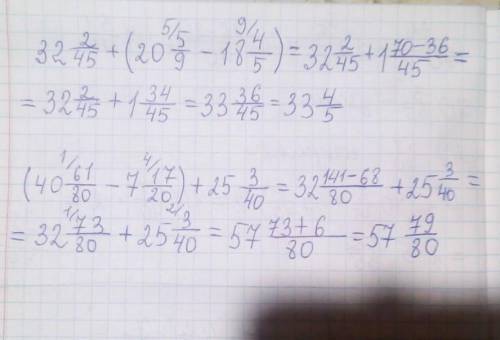 32 2/45 + (20 ⁵⁄5/9 − 18 ⁹⁄4/5) = 32 2/45 + 1 70−36/45 =
= 32 2/45 + 1 34/45 = 33 36/45 = 33 4/5
(40 ¹⁄61/80 − 7 ⁴⁄17/20) + 25 3/40 = 32 141−68/80 + 25 3/40 =
= 32 ¹⁄73/80 + 25 ²⁄3/40 = 57 73+6/80 = 57 79/80